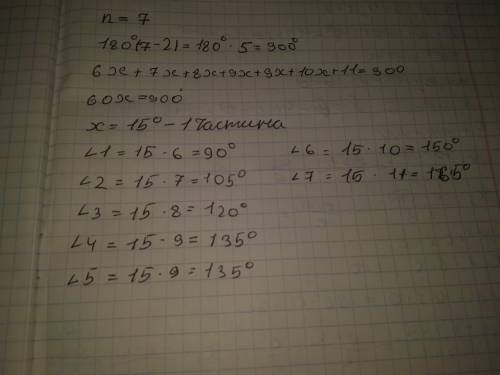 n = 7
180°(7-2) = 180° · 5 = 900°
6x + 7x + 8x + 9x + 9x + 10x + 11 = 900
60x = 900
x = 15° - 1 частина
∠1 = 15 · 6 = 90°
∠2 = 15 · 7 = 105°
∠3 = 15 · 8 = 120°
∠4 = 15 · 9 = 135°
∠5 = 15 · 9 = 135°
∠6 = 15 · 10 = 150°
∠7 = 15 · 11 = 165°